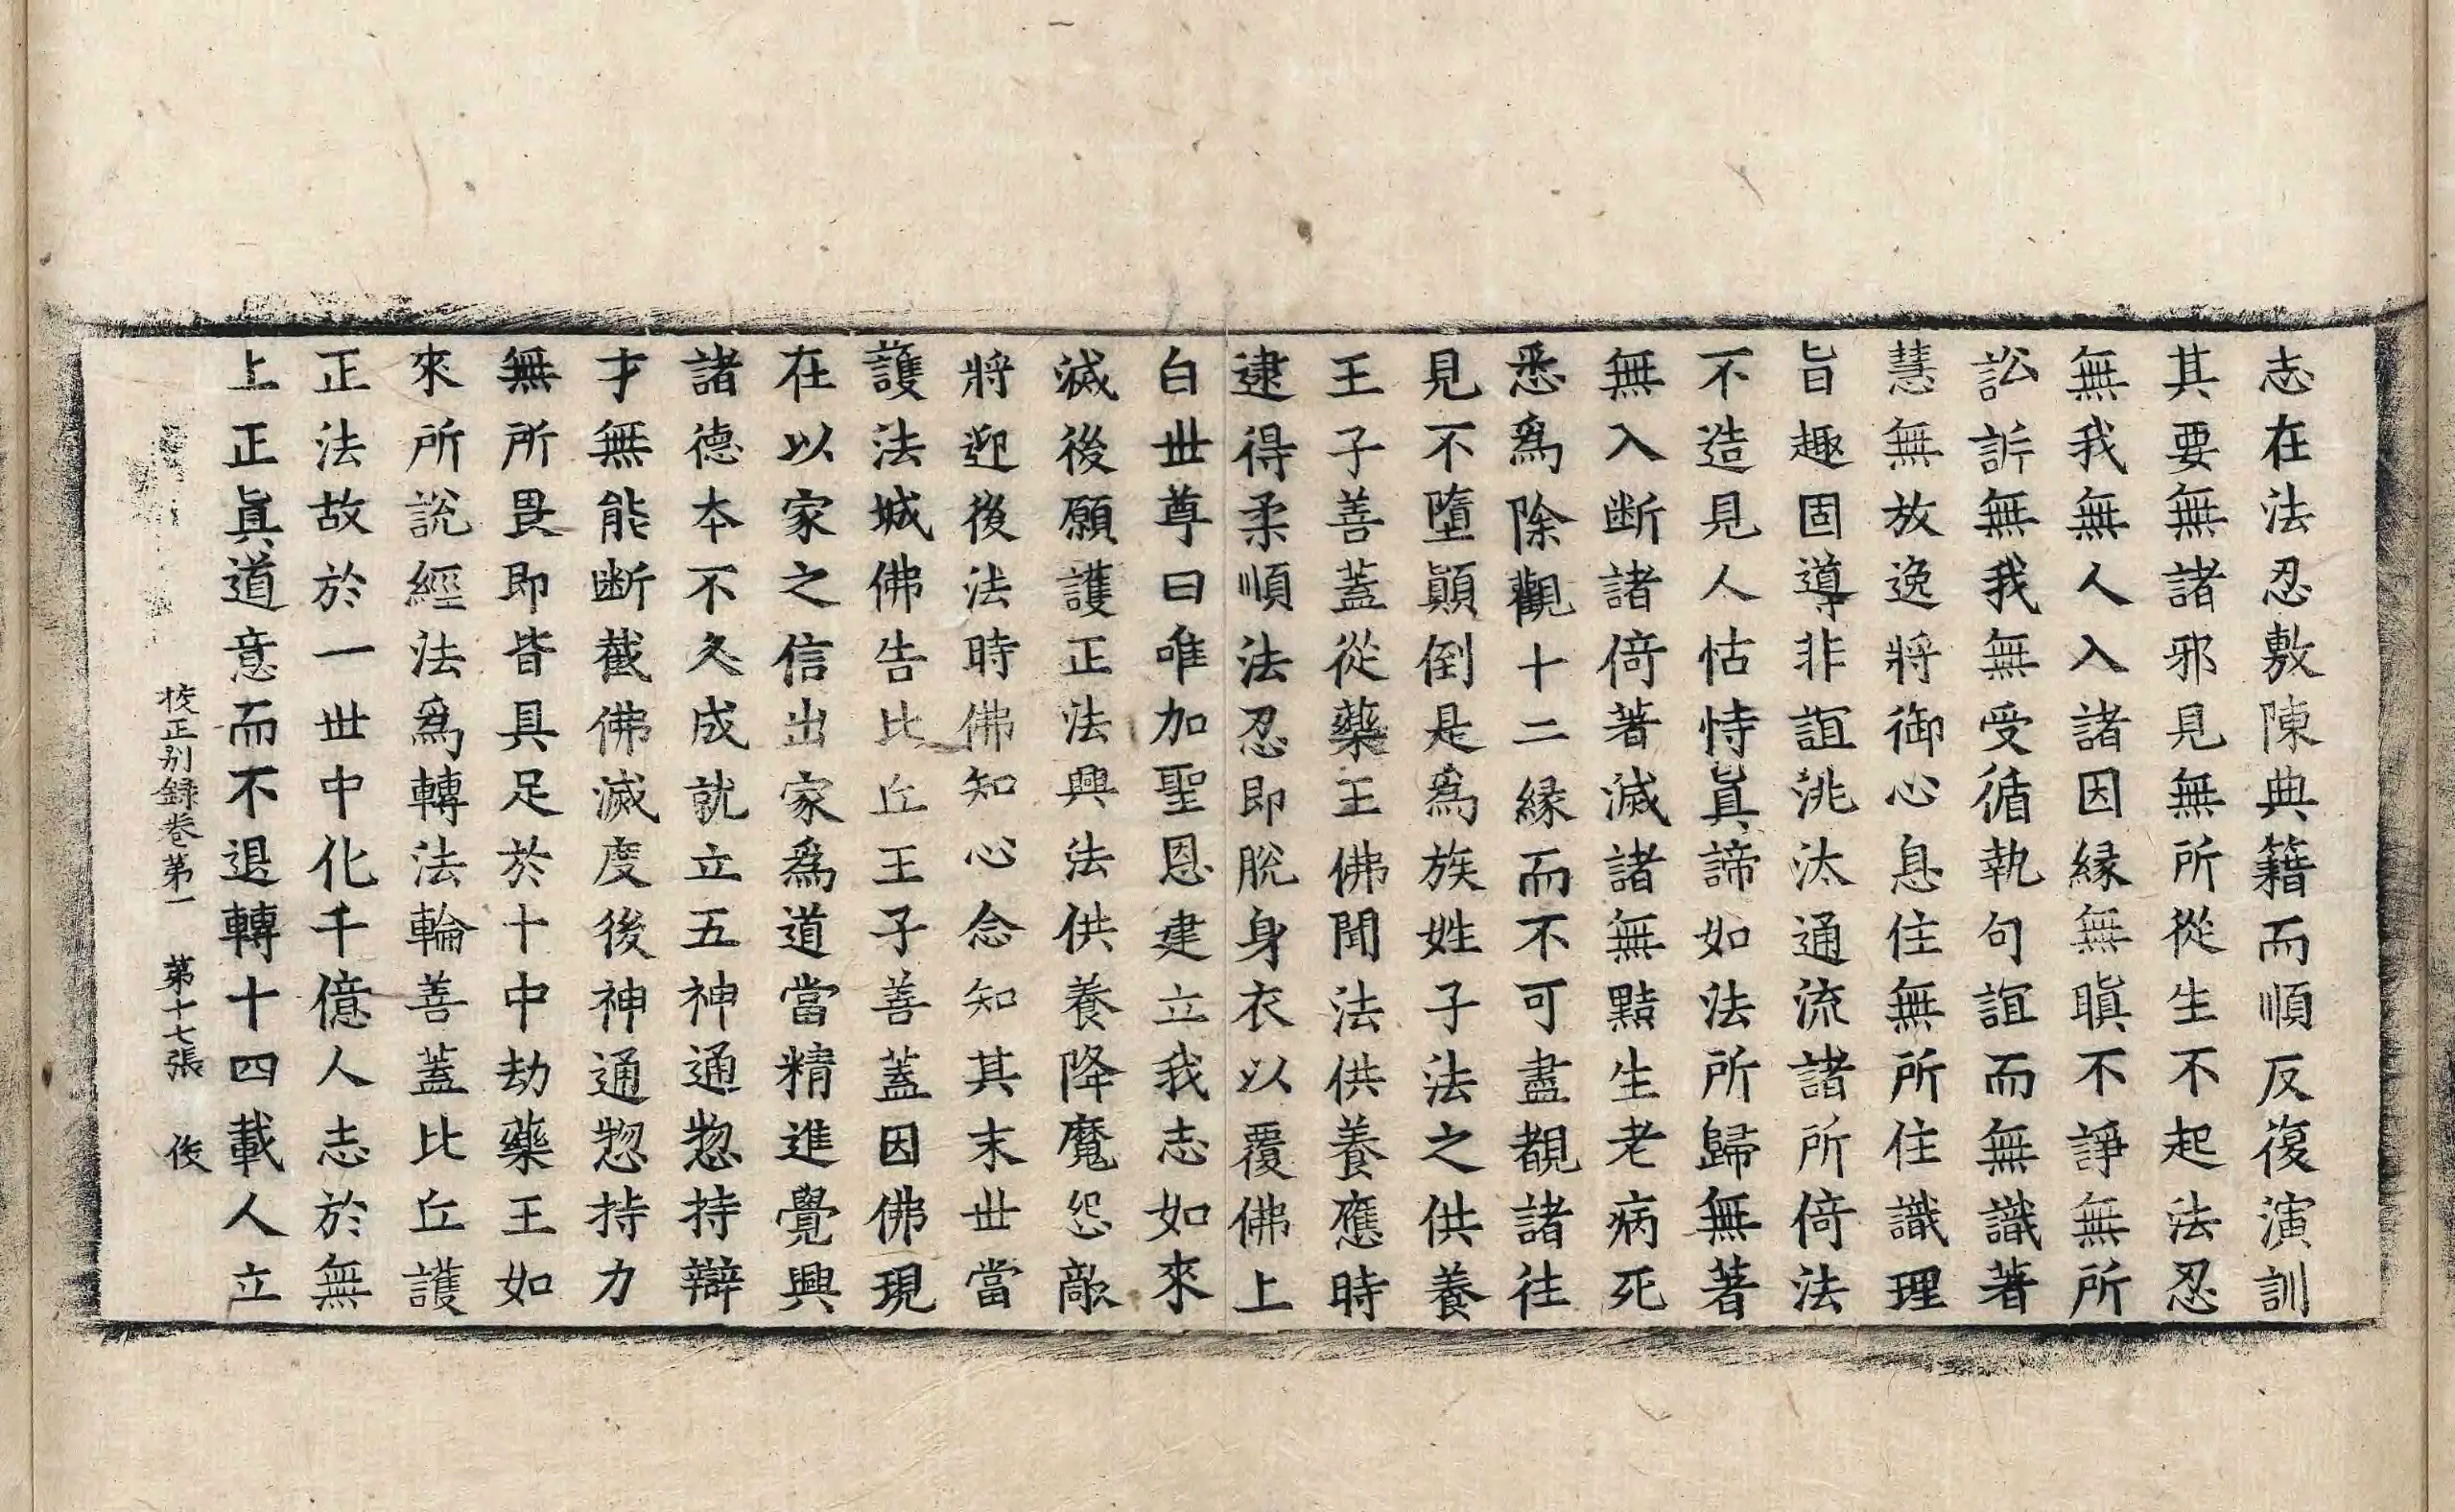 志在法忍敷陳典籍而順反復演訓
其要無諸邪見無所從生不起法忍
無我無人入諸因縁無瞋不諍無所
訟訴無我無受循執句誼而無識著
慧無放逸將御心息住無所住識理
旨趣固導非誼洮汰通流諸所倚法
不造見人怙恃眞諦如法所歸無著
無入断諸倚著滅諸無黠生老病死
悉爲除觀十二縁而不可盡覩諸往
見不墮顚倒是爲族姓子法之供養
王子善蓋從藥王佛聞法供養應時
逮得柔順法忍即脫身衣以覆佛上
白世尊曰唯加聖恩建立我志如來
滅後願護正法興法供養降魔怨敵
將迎後法時佛知心念知其末世當
護法城佛告比丘王子善蓋因佛現
在以家之信出家爲道當精進覺興
諸德本不久成就立五神通惣持辯
才無能断截佛滅度後神通惣持力
無所畏即皆具足於十中劫藥王如
來所說經法爲轉法輪善蓋比丘護
正法故於一世中化千億人志於無
上正眞道意而不退轉十四載人立
校正别録卷第一 第十七張 俊